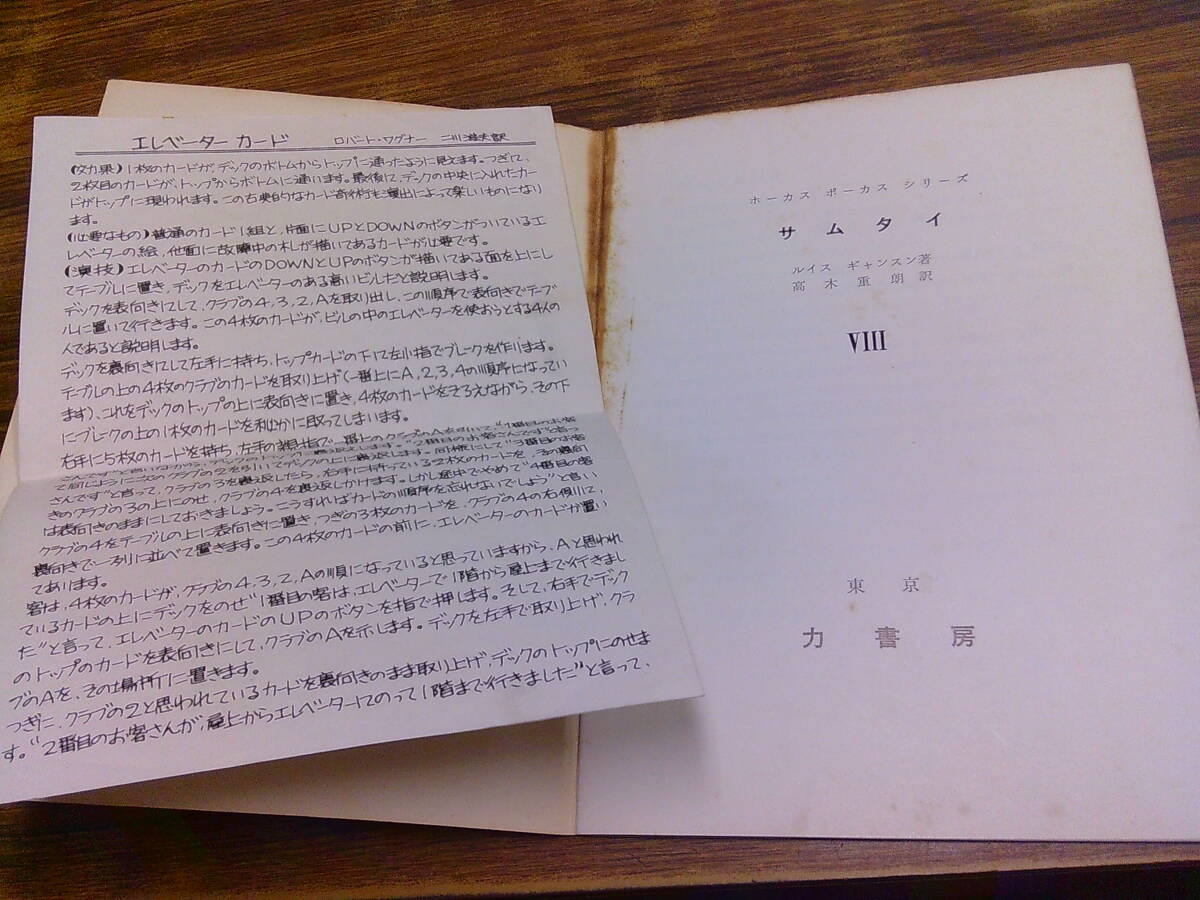 エレベーター カード　ロバート・ワグナー　二川滋夫訳
(効果) 1枚のカードが、デックのボトムからトップに通ったように見えます。つぎて、
2枚目のカードが、トップからボトムに通います。最後に、デックの中央に入れたカー
ドがトップに現われます。この古典的なカード奇術も演出によって楽しいものになり
ます。
(必要なもの) 普通のカード1組と、片面にUPとDOWNのボタンがついているエ
レベーターの絵、他面に故障中の札が描いてあるカードが必要です。
(演技) エレベーターのカードのDOWNとUPのボタンが描いてある面を上にし
てテーブルに置き、デックをエレベーターのある高いビルだと説明します。
デックを表向きにして、クラブの4,3,2,Aを取り出し、この順序で表向きでテーブ
ルに置いて行きます。この4枚のカードが、ビルの中のエレベーターを使おうとする4人の
人であると説明します。
デックを裏向きにして左手に持ち、トップカードの下に左小指でブレークを作ります。
テーブルの上の4枚のクラブのカードを取り上げ(一番上にA,2,3,4の順序になってい
ます)、これをデックのトップの上に表向きに置き、4枚のカードをそろえながら、その下
にブレークの上の1枚のカードを秘かに取ってしまいます。
右手に5枚のカードを持ち、左手の親指で一番上のクラブのAを引いて、"1番目のお客
て前のように次のクラブの2を引いてデックの上に裏返します。"2番目のお客さんです"と言っ
さんです"と言って、クラブの3を裏返したら、右手に持っている2枚のカードを、その裏向
きのクラブの3の上にのせ、クラブの4を裏返しかけます。しかし途中でやめて"4番目の客
は表向きのままにしておきましょう。こうすればカードの順序を忘れないでしょう"と言い
クラブの4をテーブルの上に表向きに置き、つぎの3枚のカードを、クラブの4の右側に、
裏向きで一列に並べて置きます。この4枚のカードの前に、エレベーターのカードが置い
てあります。
客は、4枚のカードが、クラブの4,3,2,Aの順になっていると思っていますから、Aと思われ
ているカードの上にデックをのせ"1番目の客は、エレベーターで1階から屋上まで行きまし
た"と言って、エレベーターのカードのUPのボタンを指で押します。そして、右手でデック
のトップのカードを表向きにして、クラブのAを示します。デックを左手で取り上げ、クラ
ブのAを、その場所に置きます。
つぎに、クラブの2と思われているカードを裏向きのまま取り上げ、デックのトップにのせま
す。"2番目のお客さんが、屋上からエレベーターにのって1階まで行きました"と言って、
ホーカス ポーカス シリーズ
サムタイ
ルイス ギャンスン著
高木重朗訳
VIII
東京
力書房